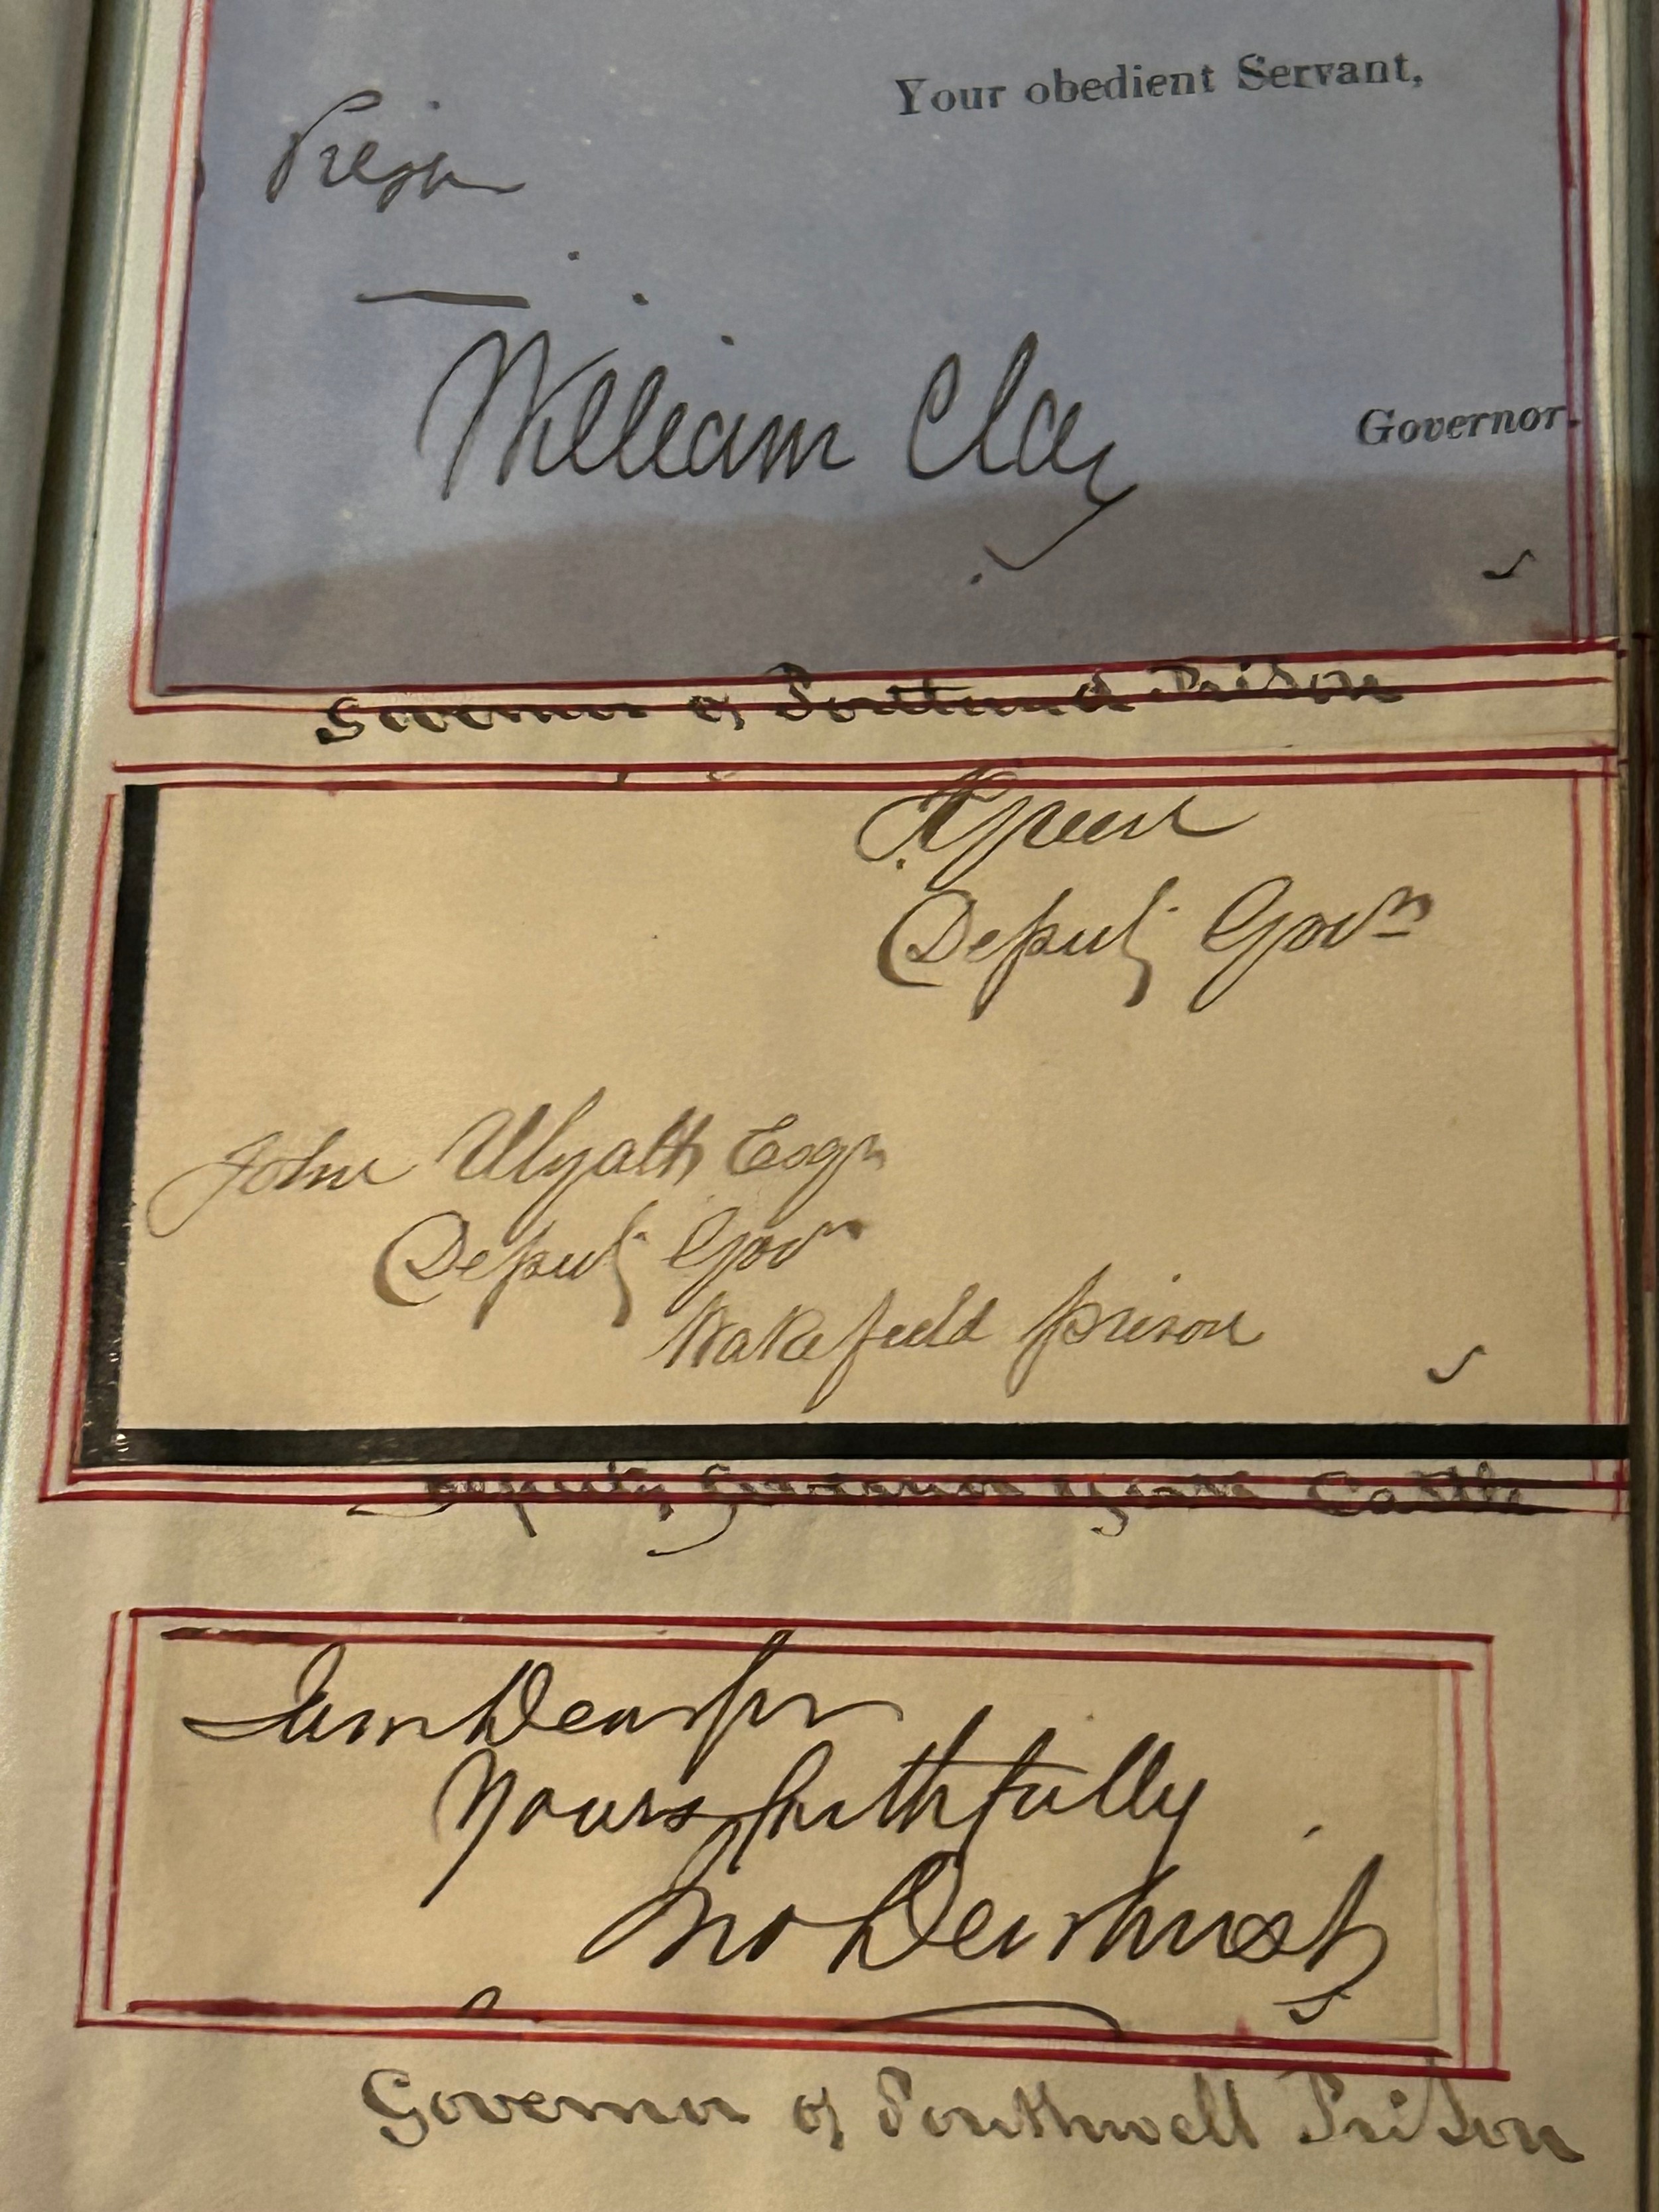 Your obedient Servant,
William Clay
Governor.
Governor of Portland Prison
Green
Deputy Govr
John Wyatt Esqr
Deputy Govr
Wakefield prison
Deputy Governor York Castle
I am Dear Sir
Yours faithfully
Jno Dewhurst
Governor of Southwell Prison